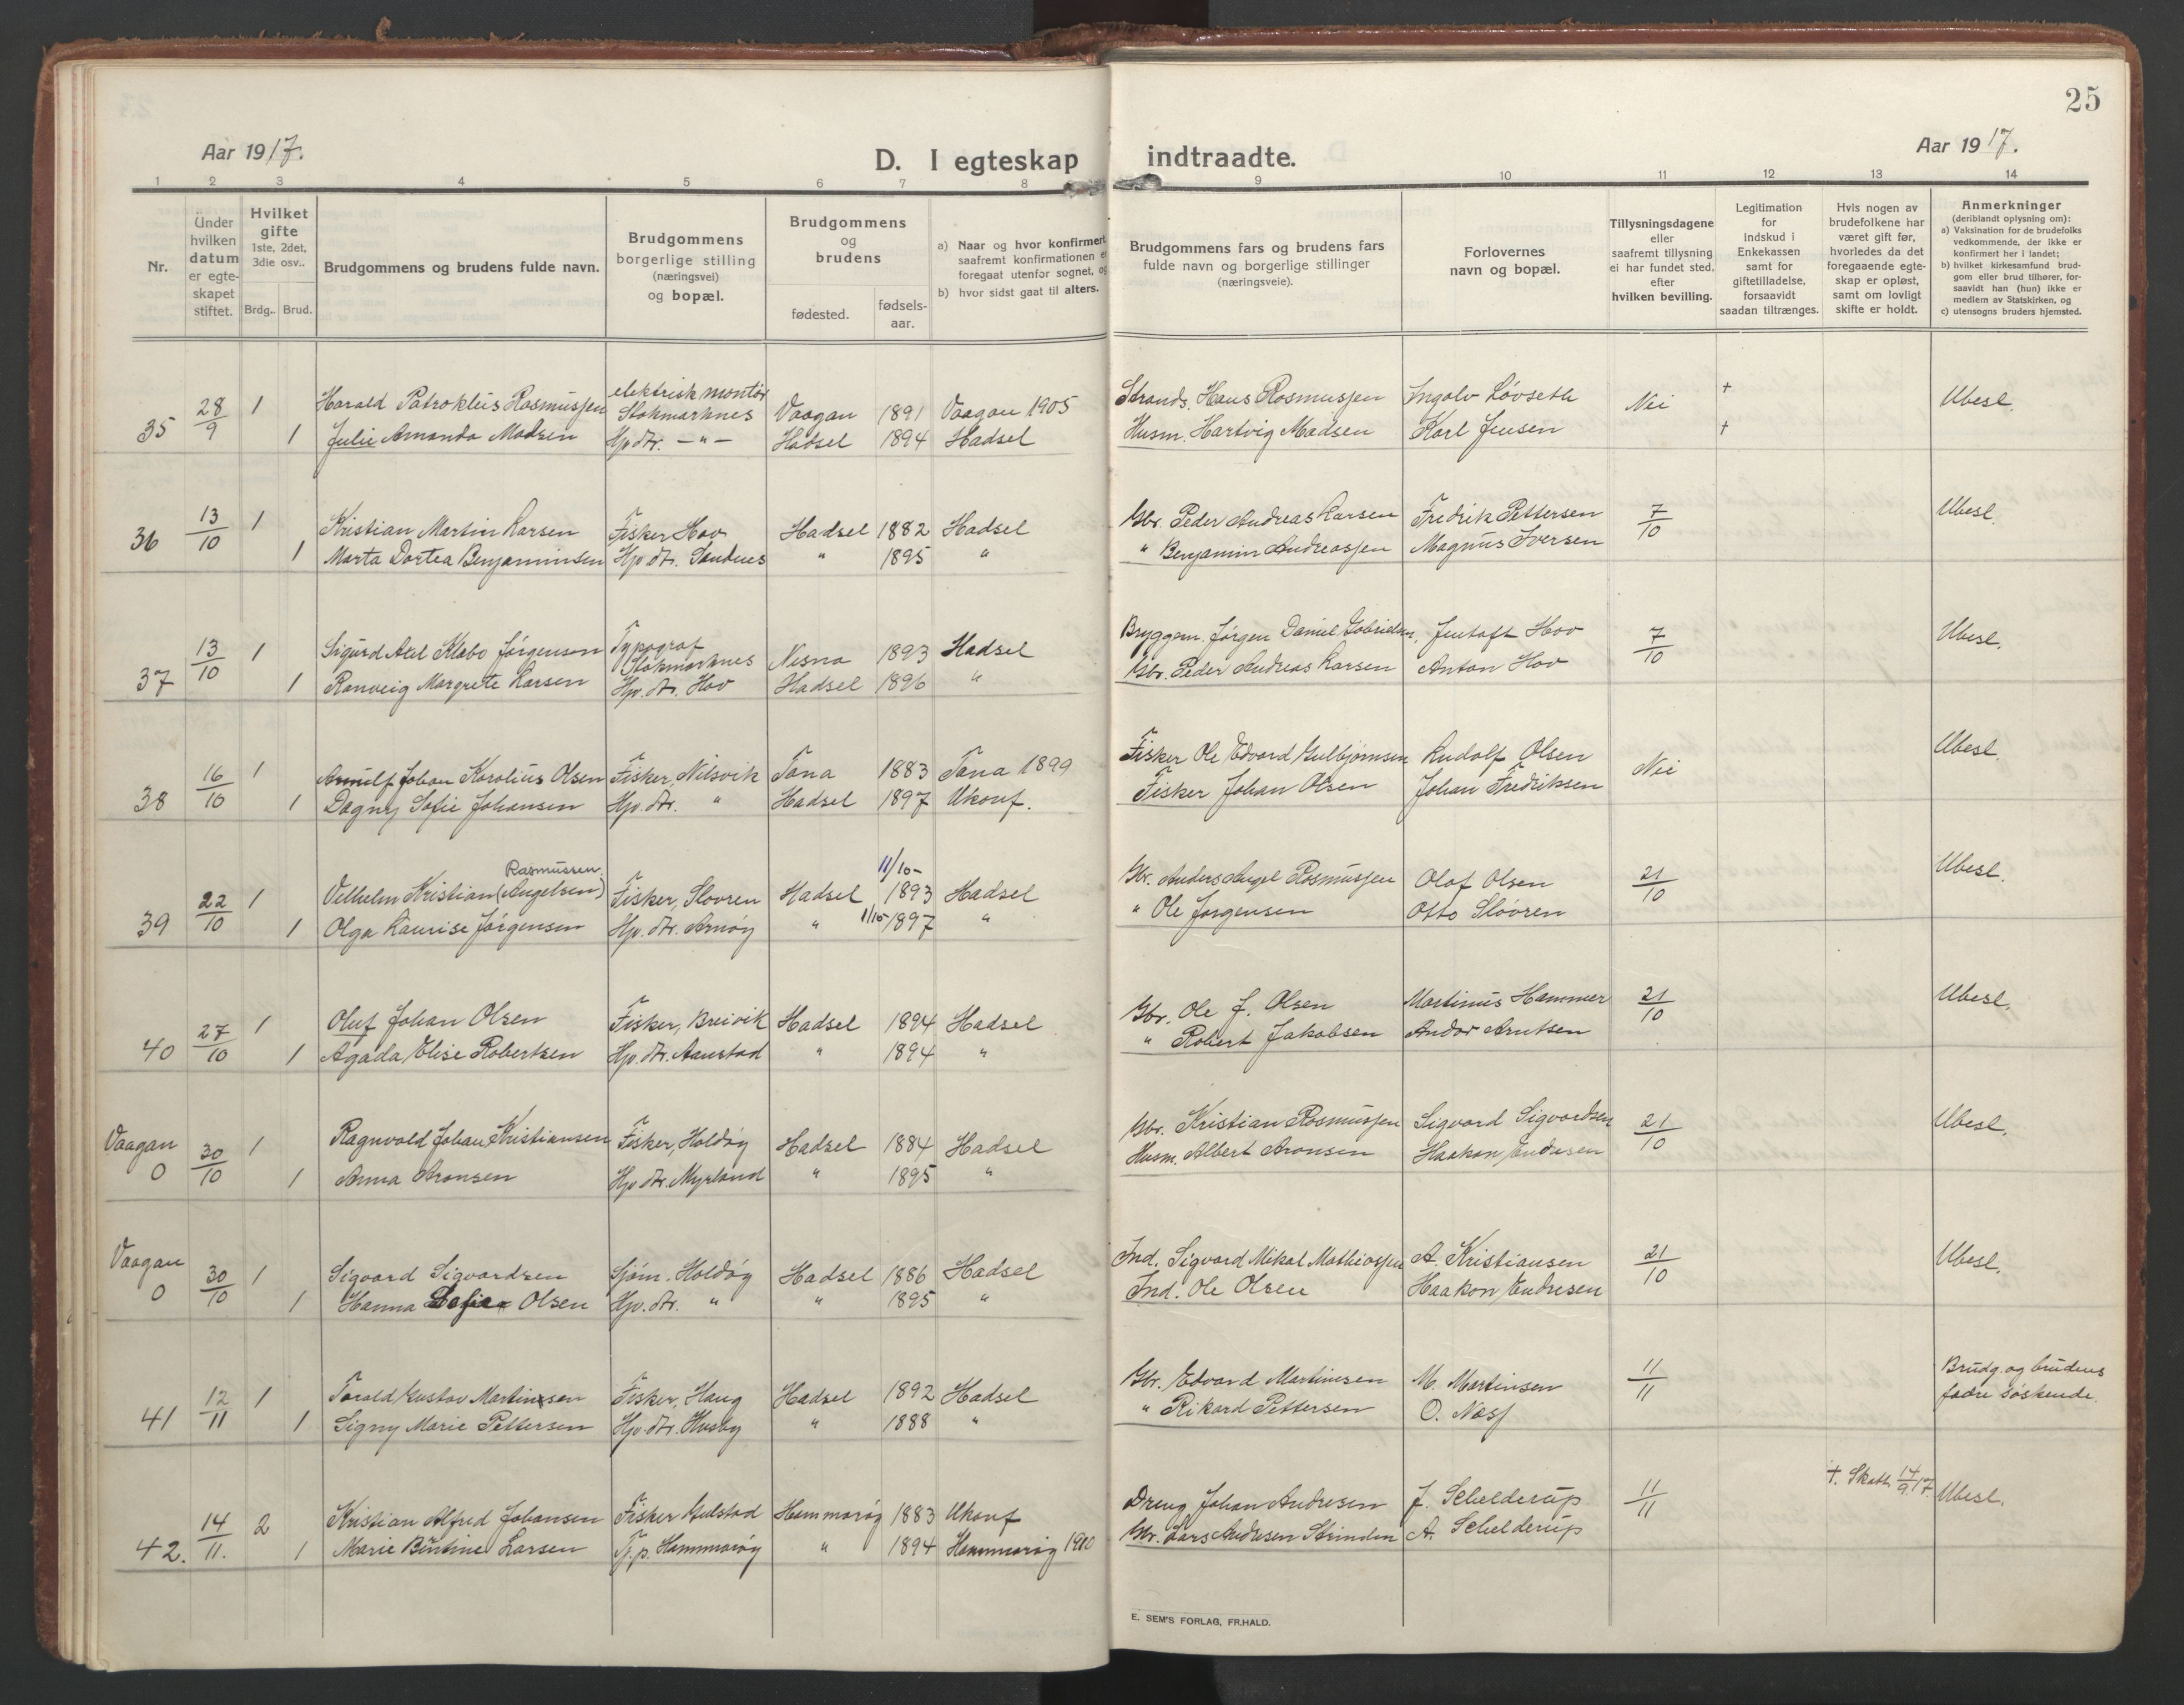 25
Aar 1917.
D. I egteskap indtraadte.
Aar 1917.
1 2 3 4 5 6 7 8 9 10 11 12 13 14
Nr.
Under hvilken datum er egteskapet stiftet.
Hvilket gifte 1ste, 2det, 3die osv..
Brdg.. Brud.
Brudgommens og brudens fulde navn.
Brudgommens borgerlige stilling (næringsvei) og bopæl.
Brudgommens og brudens
fødested. fødsels-aar.
a) Naar og hvor konfirmert saafremt konfirmationen er foregaat utenfor sognet, og
b) hvor sidst gaat til alters.
Brudgommens fars og brudens fars fulde navn og borgerlige stillinger (næringsveie).
Forlovernes navn og bopæl.
Tillysningsdagene eller saafremt tillysning ei har fundet sted, efter hvilken bevilling.
Legitimation for indskud i Enkekassen samt for giftetilladelse, forsaavidt saadan tiltrænges.
Hvis nogen av brudefolkene har været gift før, hvorledes da det foregaaende egteskap er opløst, samt om lovligt skifte er holdt.
Anmerkninger (deriblandt oplysning om):
a) Vaksination for de brudefolks vedkommende, der ikke er konfirmert her i landet;
b) hvilket kirkesamfund brudgom eller brud tilhører, forsaavidt han (hun) ikke er medlem av Statskirken, og
c) utensogns bruders hjemsted.
35 28/9 1 Harald Patroklus Rasmussen elektrisk montør Stokmarknes Vaagan 1891 Vaagan 1905 Strands. Hans Rasmussen Ingolv Løvseth Nei + Ubesl.
1 Julie Amanda Madsen Hp dtr. - " - Hadsel 1894 Hadsel Husm. Hartvig Madsen Karl Jensen +
36 13/10 1 Kristian Martin Larsen Fisker Hov Hadsel 1882 Hadsel Gbr. Peder Andreas Larsen Fredrik Pettersen 7/10 Ubesl.
1 Marta Dortea Benjaminsen Hp dtr. Sandnes " 1895 " " Benjamin Andreassen Magnus Iversen
37 13/10 1 Sigurd Axel Klæbo Jørgensen Typograf Stokmarknes Nesna 1893 Hadsel Bryggem. Jørgen Daniel Gabrielsen. Jentoft Hov 7/10 Ubesl.
1 Ranveig Margrete Larsen Hp. dtr. Hov Hadsel 1896 " Gbr. Peder Andreas Larsen Anton Hov
38 16/10 1 Arnulf Johan Karolius Olsen Fisker, Nilsvik Tana 1883 Tana 1899 Fisker Ole Edvard Gulbjørnsen Rudolf Olsen Nei Ubesl.
1 Dagny Sofie Johansen Hp. dtr. " Hadsel 1897 Ukonf. Fisker Johan Olsen Johan Fredriksen
Rasmussen 11/10-
39 22/10 1 Vilhelm Kristian (Angelsen) Fisker, Slovren Hadsel 1893 Hadsel Gbr. Anders Angel Rasmussen Olaf Olsen 21/10 Ubesl.
1 Olga Laurise Jørgensen Hp. dtr. Arnøy " 1/10 1897 " " Ole Jørgensen Otto Slovren
40 27/10 1 Oluf Johan Olsen Fisker, Breivik Hadsel 1894 Hadsel Gbr. Ole J. Olsen Martinus Hammer 21/10 Ubesl.
1 Agada Elise Robertsen Hp. dtr. Aanstad " 1894 " " Robert Jakobsen Andor Arntsen
Vaagan 0 30/10 1 Ragnvald Johan Kristiansen Fisker, Holdøy Hadsel 1884 Hadsel Gbr. Kristian Rasmussen Sigvard Sigvardsen 21/10 Ubesl.
1 Anna Aronsen Hp dtr. Myrland " 1895 " Husm. Albert Aronsen Haakon Endresen
Vaagan 0 30/10 1 Sigvard Sigvardsen Sjøm. Holdøy Hadsel 1886 Hadsel Ind. Sigvard Mikal Mathiassen A. Kristiansen 21/10 Ubesl.
1 Hanna Sofie Olsen Hp. dtr. " " 1895 " Ind. Ole Olsen Haakon Endresen
41 12/11 1 Torald Gustav Martinsen Fisker, Haug Hadsel 1892 Hadsel Gbr. Edvard Martinsen M. Martinsen 11/11 Brudg. og brudens fædre søskende.
1 Signy Marie Pettersen Hp. dtr. Husby " 1888 " " Rikard Pettersen O. Næss
42. 14/11. 2 Kristian Alfred Johansen Fisker Gulstad Hammarøy 1883 Ukonf Dreng Johan Andresen J. Schelderup 11/11 +. Skatt. 14/9 17. Ubesl.
1 Marie Bintine Larsen Tj.p. Hammarøy " 1894 Hammarøy 1910 Gbr. Lars Andresen Strinden A. Schelderup
E. SEM'S FORLAG, FR.HALD.